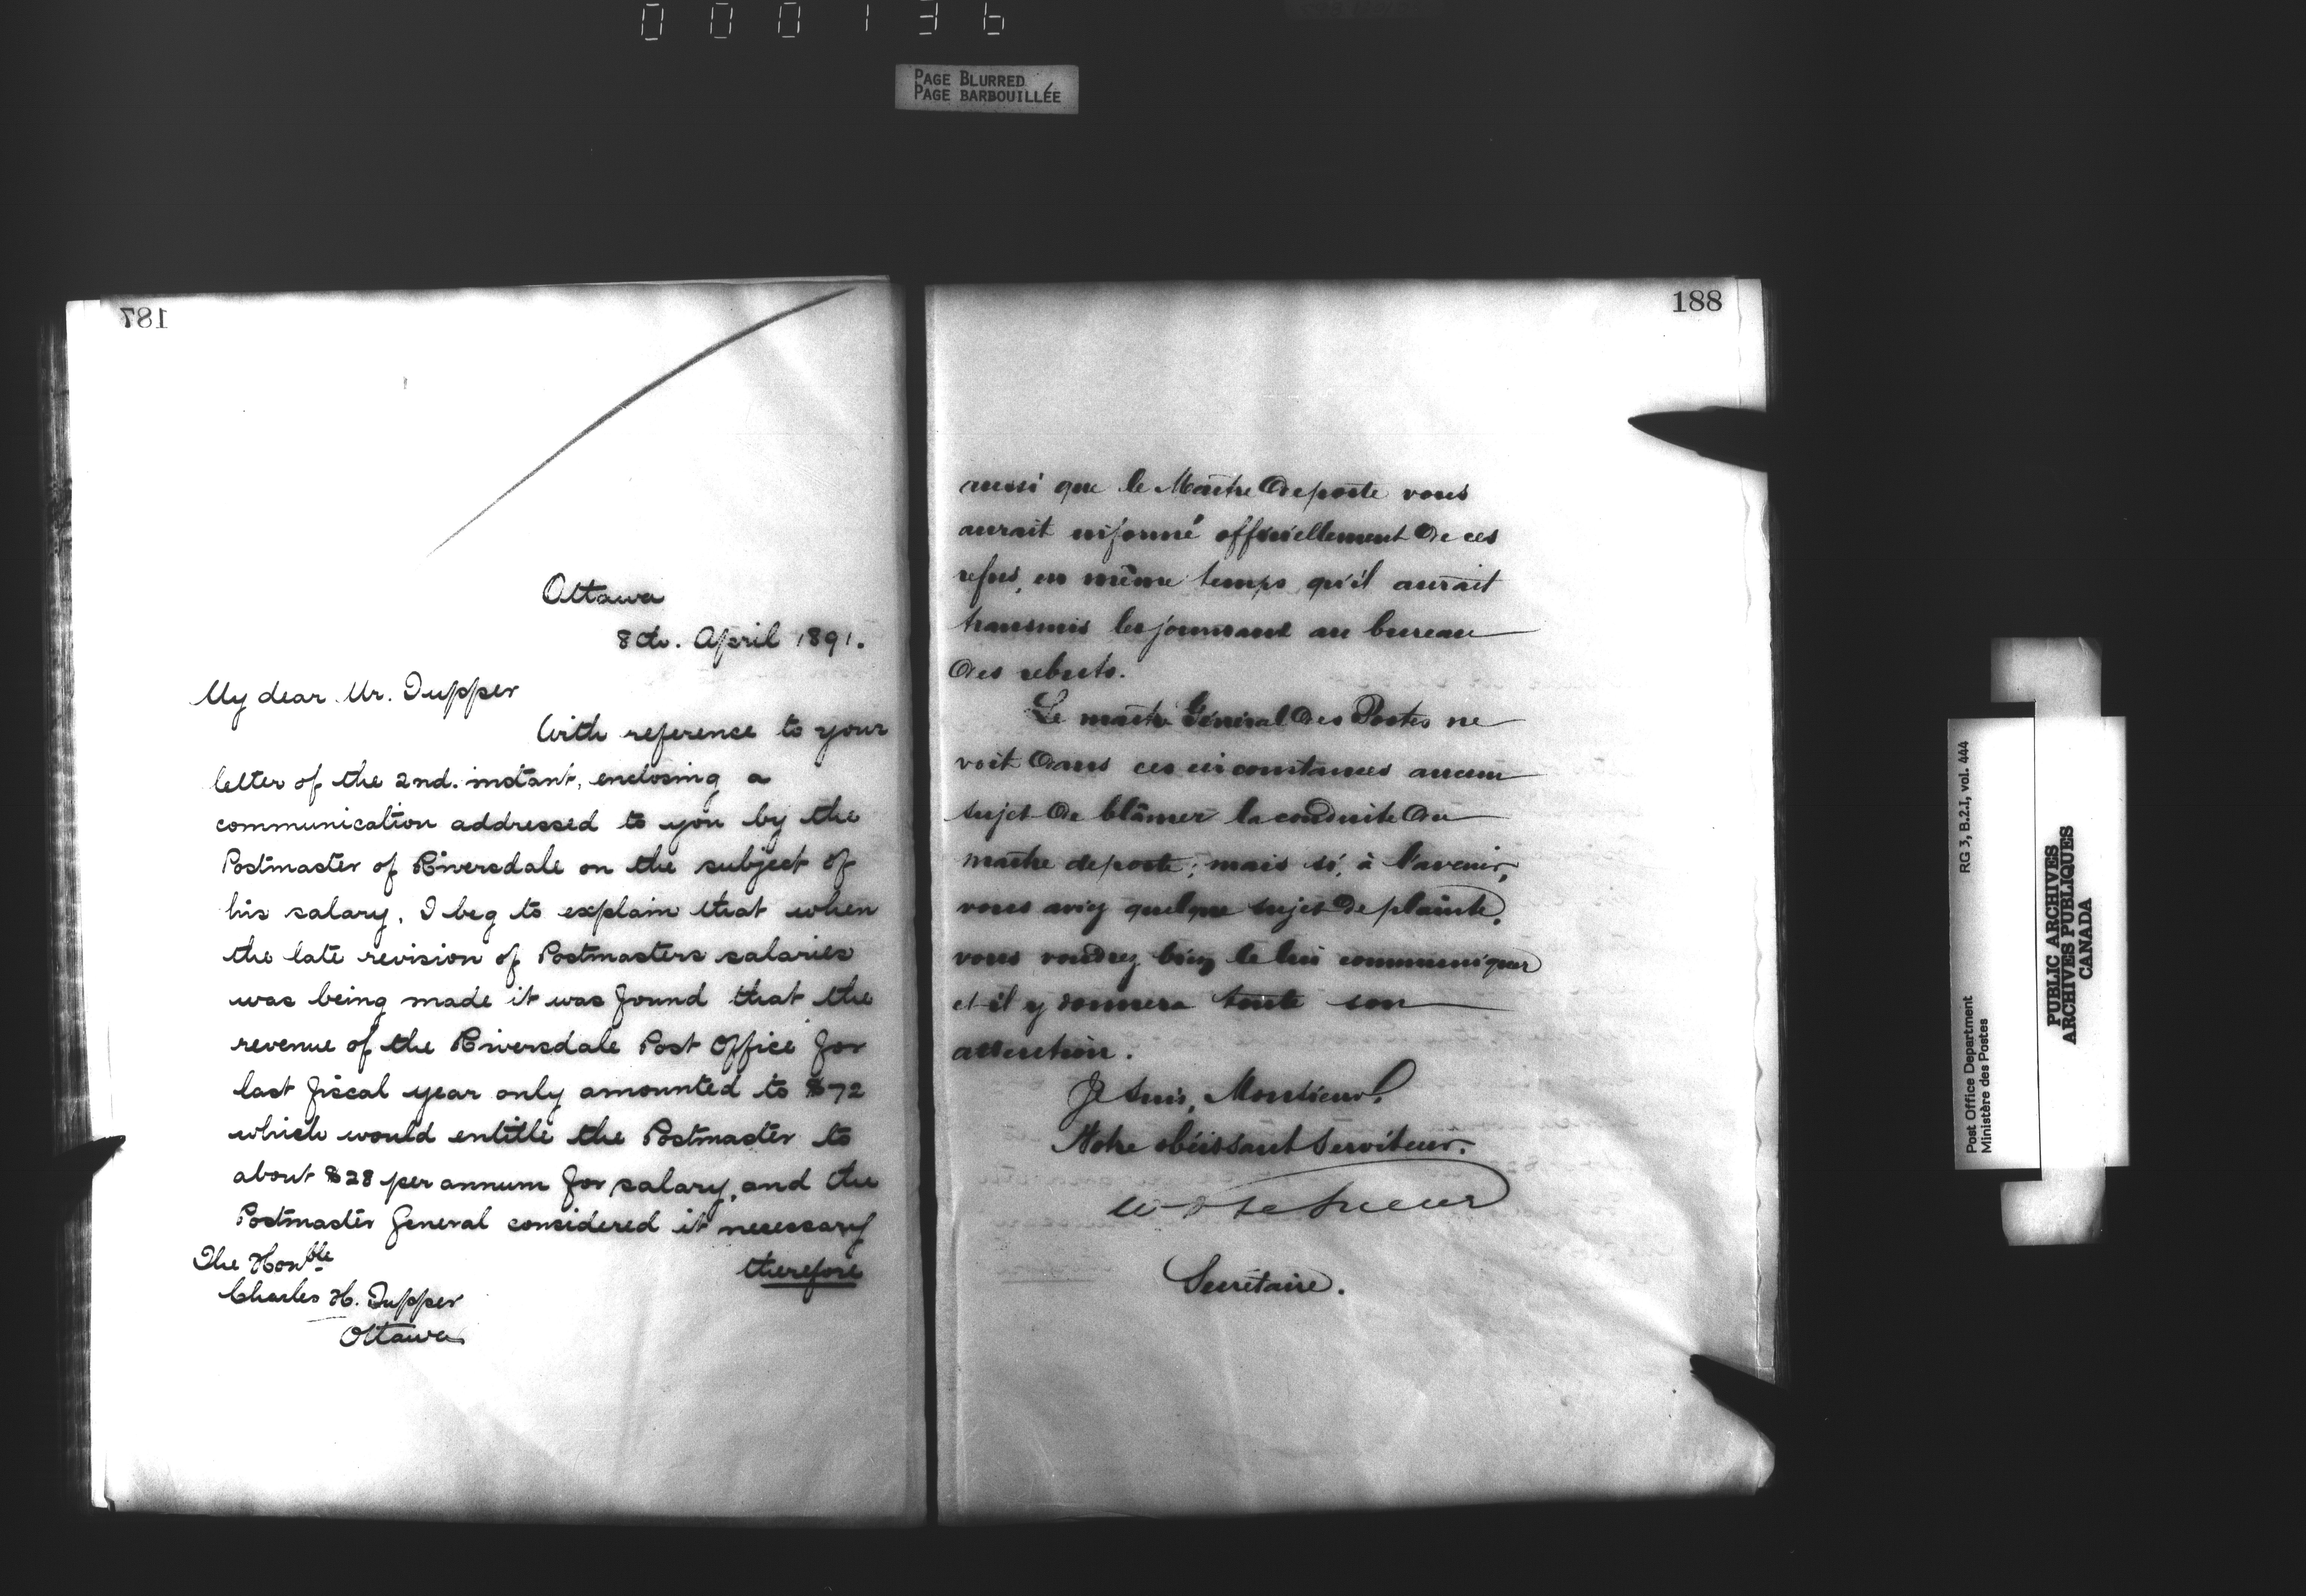 000136
PAGE BLURRED
PAGE BARBOUILLÉE
187
Ottawa
8th. April 1891.
My dear Mr. Tupper
With reference to your
letter of the 2nd. instant, enclosing a
communication addressed to you by the
Postmaster of Riversdale on the subject of
his salary, I beg to explain that when
the late revision of Postmasters salaries
was being made it was found that the
revenue of the Riversdale Post Office for
last fiscal year only amounted to $72
which would entitle the Postmaster to
about $28 per annum for salary, and the
Postmaster General considered it necessary
therefore
The Honble
Charles H. Tupper
Ottawa
188
aussi que le Maître de poste vous
aurait informé officiellement de ces
refus, en même temps qu'il aurait
transmis les journaux au bureau
des rebuts.
Le maître Général des Postes ne
voit dans ces circonstances aucun
sujet de blâmer la conduite du
maître de poste; mais si, à l'avenir,
vous aviez quelque sujet de plainte,
vous voudrez bien le lui communiquer
et il y donnera toute son
attention.
Je suis, Monsieur,
Votre obéissant Serviteur.
W D LeSueur
Secrétaire.
Post Office Department
Ministère des Postes
RG 3, B.2.I, vol. 444
PUBLIC ARCHIVES
ARCHIVES PUBLIQUES
CANADA